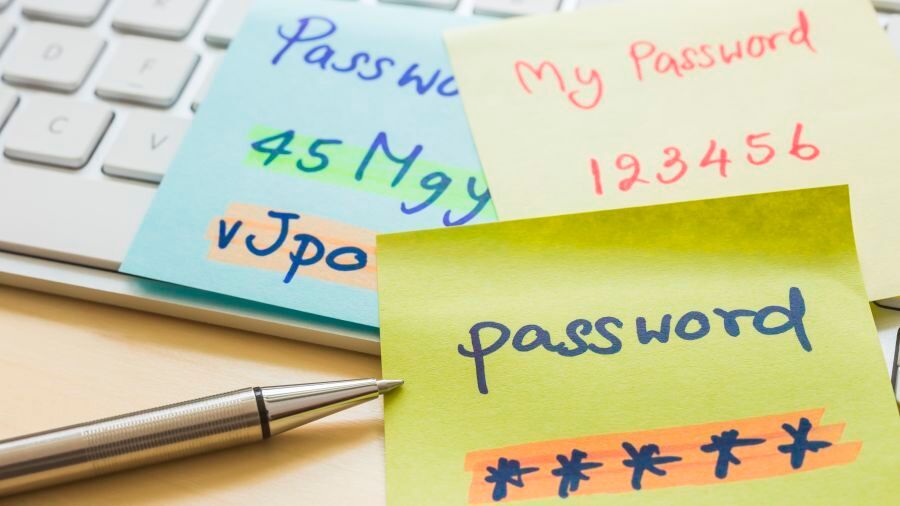 D
F
C
V
Passwo
45 Mgy
vJpo
My Password
123456
password
*****